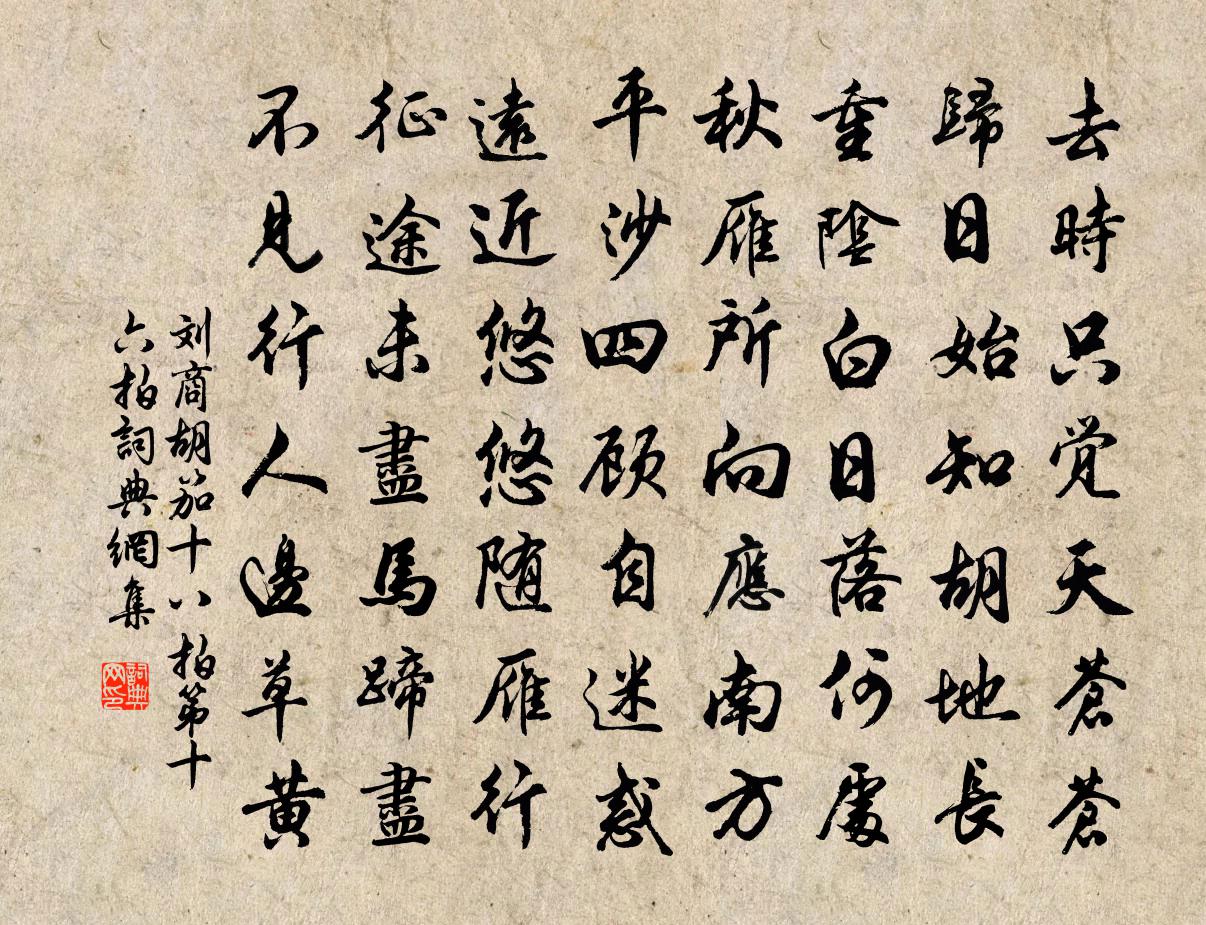 去時只覚天蒼蒼
歸日始知胡地長
重陰白日落何處
秋雁所向應南方
平沙四顾自迷惑
遠近悠悠随雁行
征途未盡馬蹄盡
不見行人邊草黄
刘商胡笳十八拍第十
六拍詞典網集
詞典网印